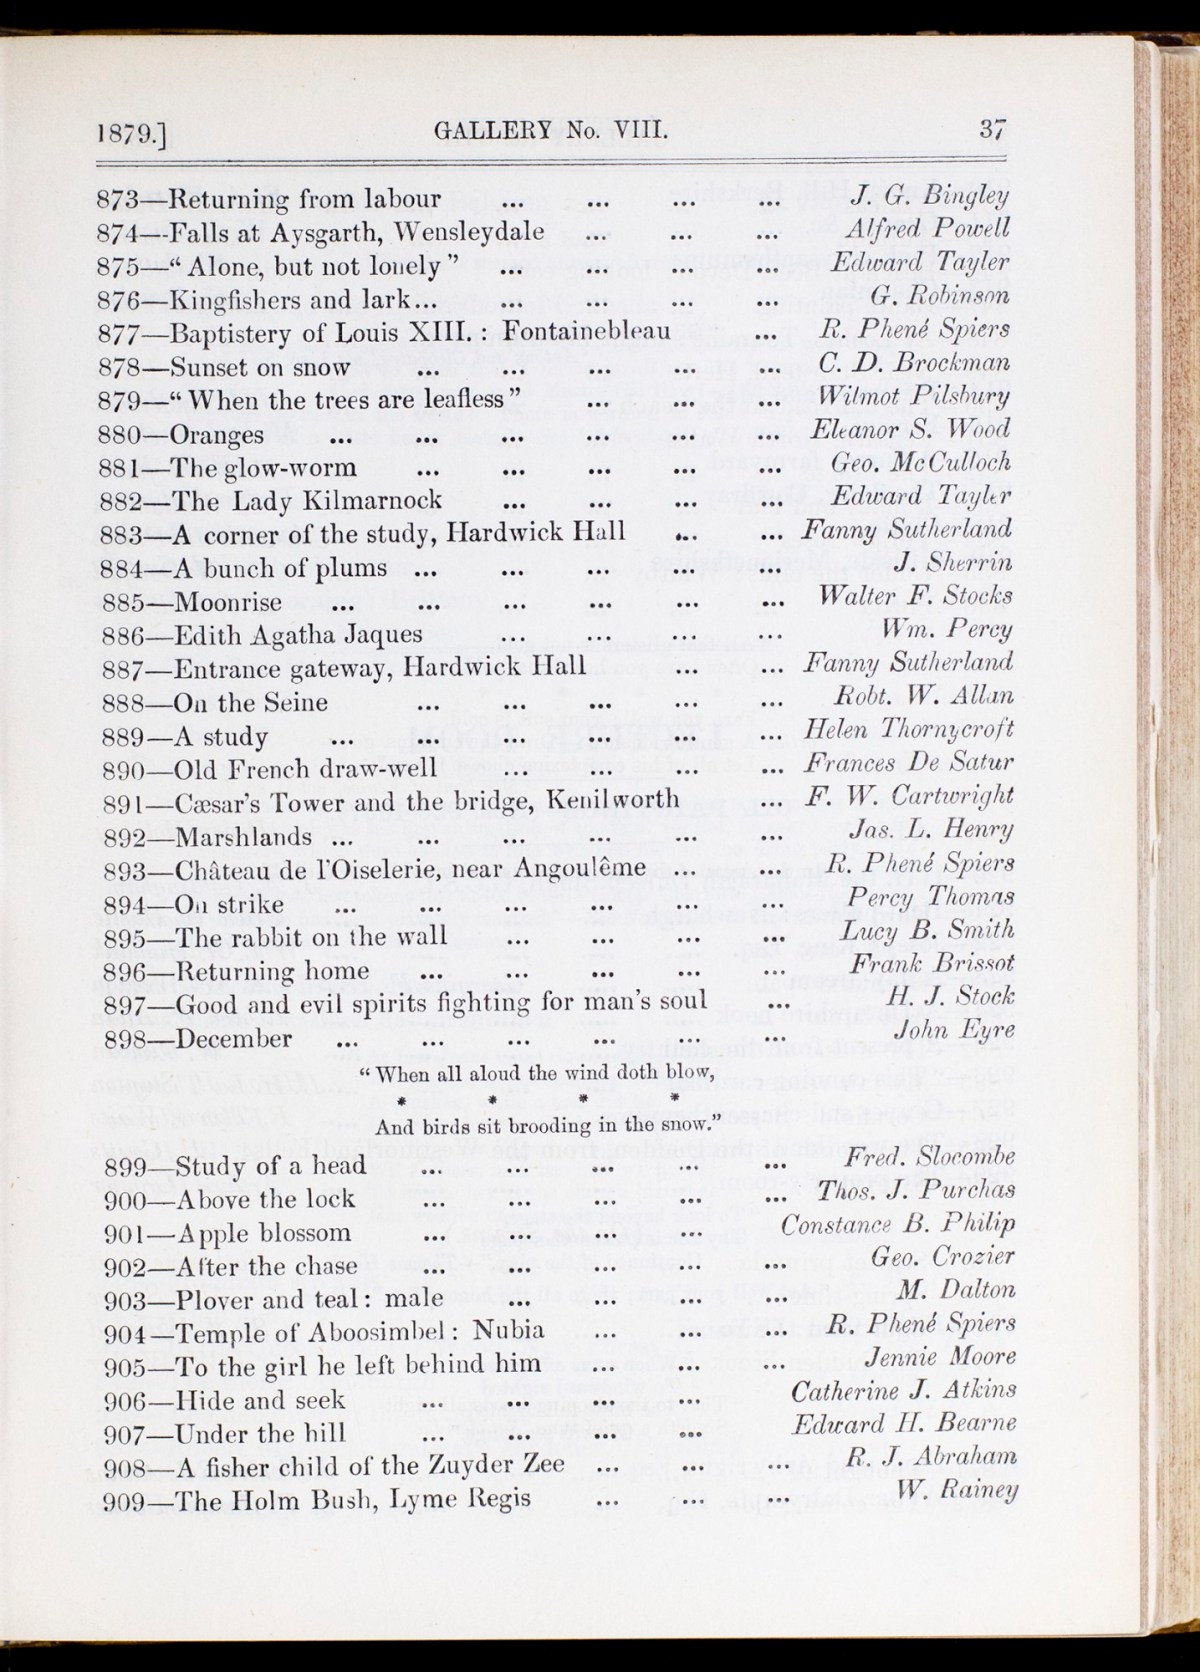 1879.] GALLERY No. VIII. 37
873—Returning from labour ... ... ... ... J. G. Bingley
874—Falls at Aysgarth, Wensleydale ... ... ... Alfred Powell
875—“Alone, but not lonely” ... ... ... ... Edward Tayler
876—Kingfishers and lark... ... ... ... ... G. Robinson
877—Baptistery of Louis XIII. : Fontainebleau ... R. Phené Spiers
878—Sunset on snow ... ... ... ... ... C. D. Brockman
879—“When the trees are leafless” ... ... ... Wilmot Pilsbury
880—Oranges ... ... ... ... ... ... Eleanor S. Wood
881—The glow-worm ... ... ... ... ... Geo. McCulloch
882—The Lady Kilmarnock ... ... ... ... Edward Tayler
883—A corner of the study, Hardwick Hall ... ... Fanny Sutherland
884—A bunch of plums ... ... ... ... ... J. Sherrin
885—Moonrise ... ... ... ... ... ... Walter F. Stocks
886—Edith Agatha Jaques ... ... ... ... Wm. Percy
887—Entrance gateway, Hardwick Hall ... ... Fanny Sutherland
888—On the Seine ... ... ... ... ... Robt. W. Allan
889—A study ... ... ... ... ... ... Helen Thornycroft
890—Old French draw-well ... ... ... ... Frances De Satur
891—Cæsar’s Tower and the bridge, Kenilworth ... F. W. Cartwright
892—Marshlands ... ... ... ... ... ... Jas. L. Henry
893—Château de l’Oiselerie, near Angoulême ... ... R. Phené Spiers
894—On strike ... ... ... ... ... ... Percy Thomas
895—The rabbit on the wall ... ... ... ... Lucy B. Smith
896—Returning home ... ... ... ... ... Frank Brissot
897—Good and evil spirits fighting for man’s soul ... H. J. Stock
898—December ... ... ... ... ... ... John Eyre
“When all aloud the wind doth blow,
* * * *
And birds sit brooding in the snow.”
899—Study of a head ... ... ... ... ... Fred. Slocombe
900—Above the lock ... ... ... ... ... Thos. J. Purchas
901—Apple blossom ... ... ... ... Constance B. Philip
902—After the chase ... ... ... ... ... Geo. Crozier
903—Plover and teal: male ... ... ... ... M. Dalton
904—Temple of Aboosimbel: Nubia ... ... ... R. Phené Spiers
905—To the girl he left behind him ... ... ... Jennie Moore
906—Hide and seek ... ... ... ... Catherine J. Atkins
907—Under the hill ... ... ... ... Edward H. Bearne
908—A fisher child of the Zuyder Zee ... ... ... R. J. Abraham
909—The Holm Bush, Lyme Regis ... ... ... W. Rainey